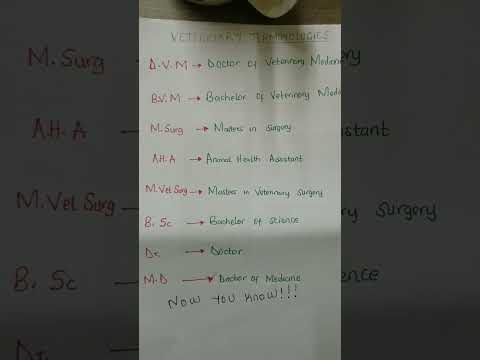 VETERINARY TERMINOLOGIES
D.V.M → Doctor of Veterinary Medicine
B.V.M → Bachelor of Veterinary Medi
M.Surg → Masters in Surgery
A.H.A → Animal Health Assistant
M.Vet Surg → Masters in Veterinary Surgery
B.Sc → Bachelor of Science
Dr. → Doctor
M.D → Doctor of Medicine
NOW YOU KNOW!!!
M. Surg
A.H.A
istant
M.Vet Surg
ry Surgery
B. Sc
ience
Dr.